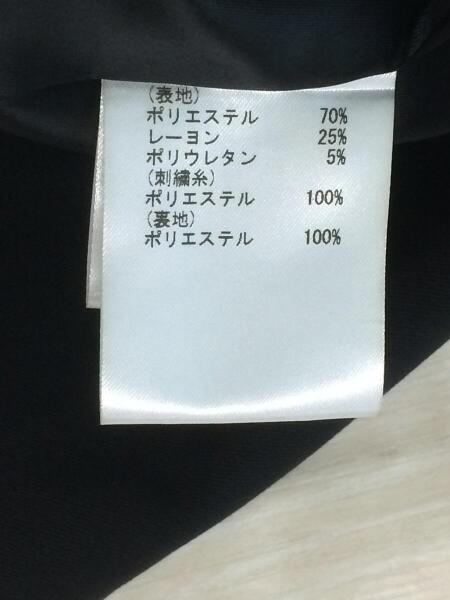 (表地)
ポリエステル 70%
レーヨン 25%
ポリウレタン 5%
(刺繍糸)
ポリエステル 100%
(裏地)
ポリエステル 100%